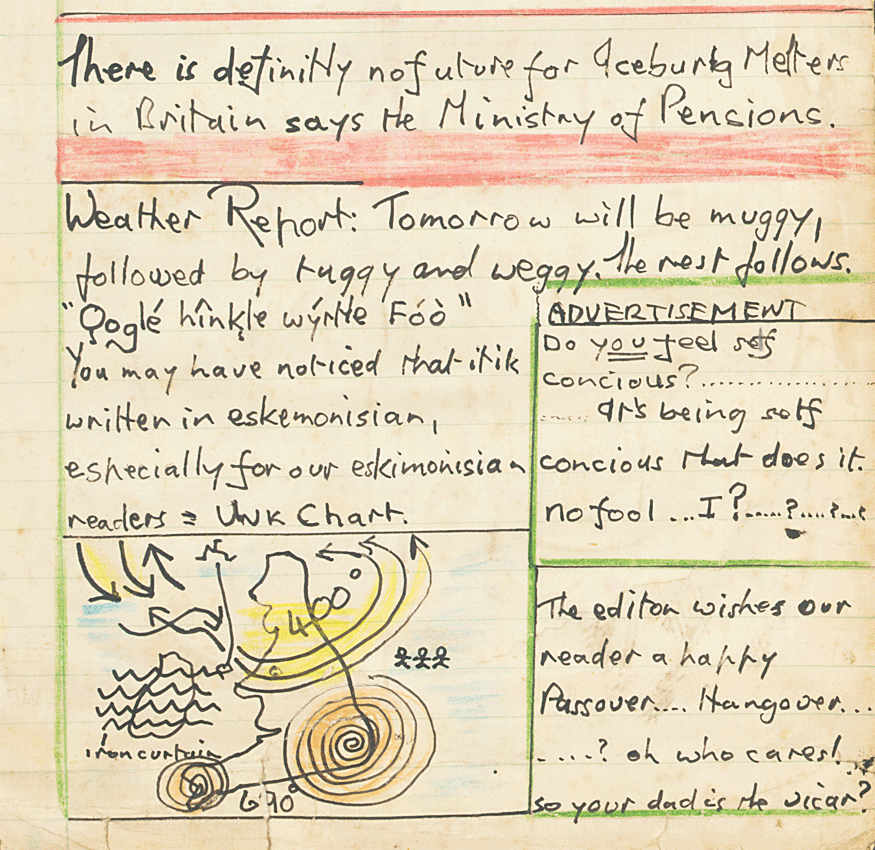 There is definitly no future for Iceburkg Melters
in Britain says the Ministry of Pensions.
Weather Report: Tomorrow will be muggy,
followed by tuggy and weggy. The rest follows.
"Qoglé hînkle wýrtte Fóò"
You may have noticed that it ik
written in eskemonisian,
especially for our eskimonisian
readers = UNK Chart.
400°
iron curtain
690°
ADVERTISEMENT
Do you feel self
concious?................
...... It's being self
concious that does it.
no fool ...I?.....?....?...
The editor wishes our
reader a happy
Passover.... Hangover...
.....? oh who cares!
so your dad is the vicar?